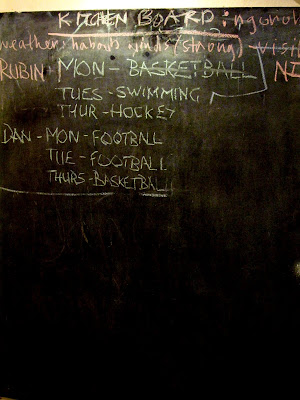 KITCHEN BOARD
weather habarb winds (strong)
RUBIN MON - BASKETBALL
TUES - SWIMMING
THUR - HOCKEY
DAN - MON - FOOTBALL
TUE - FOOTBALL
THURS - BASKETBALL